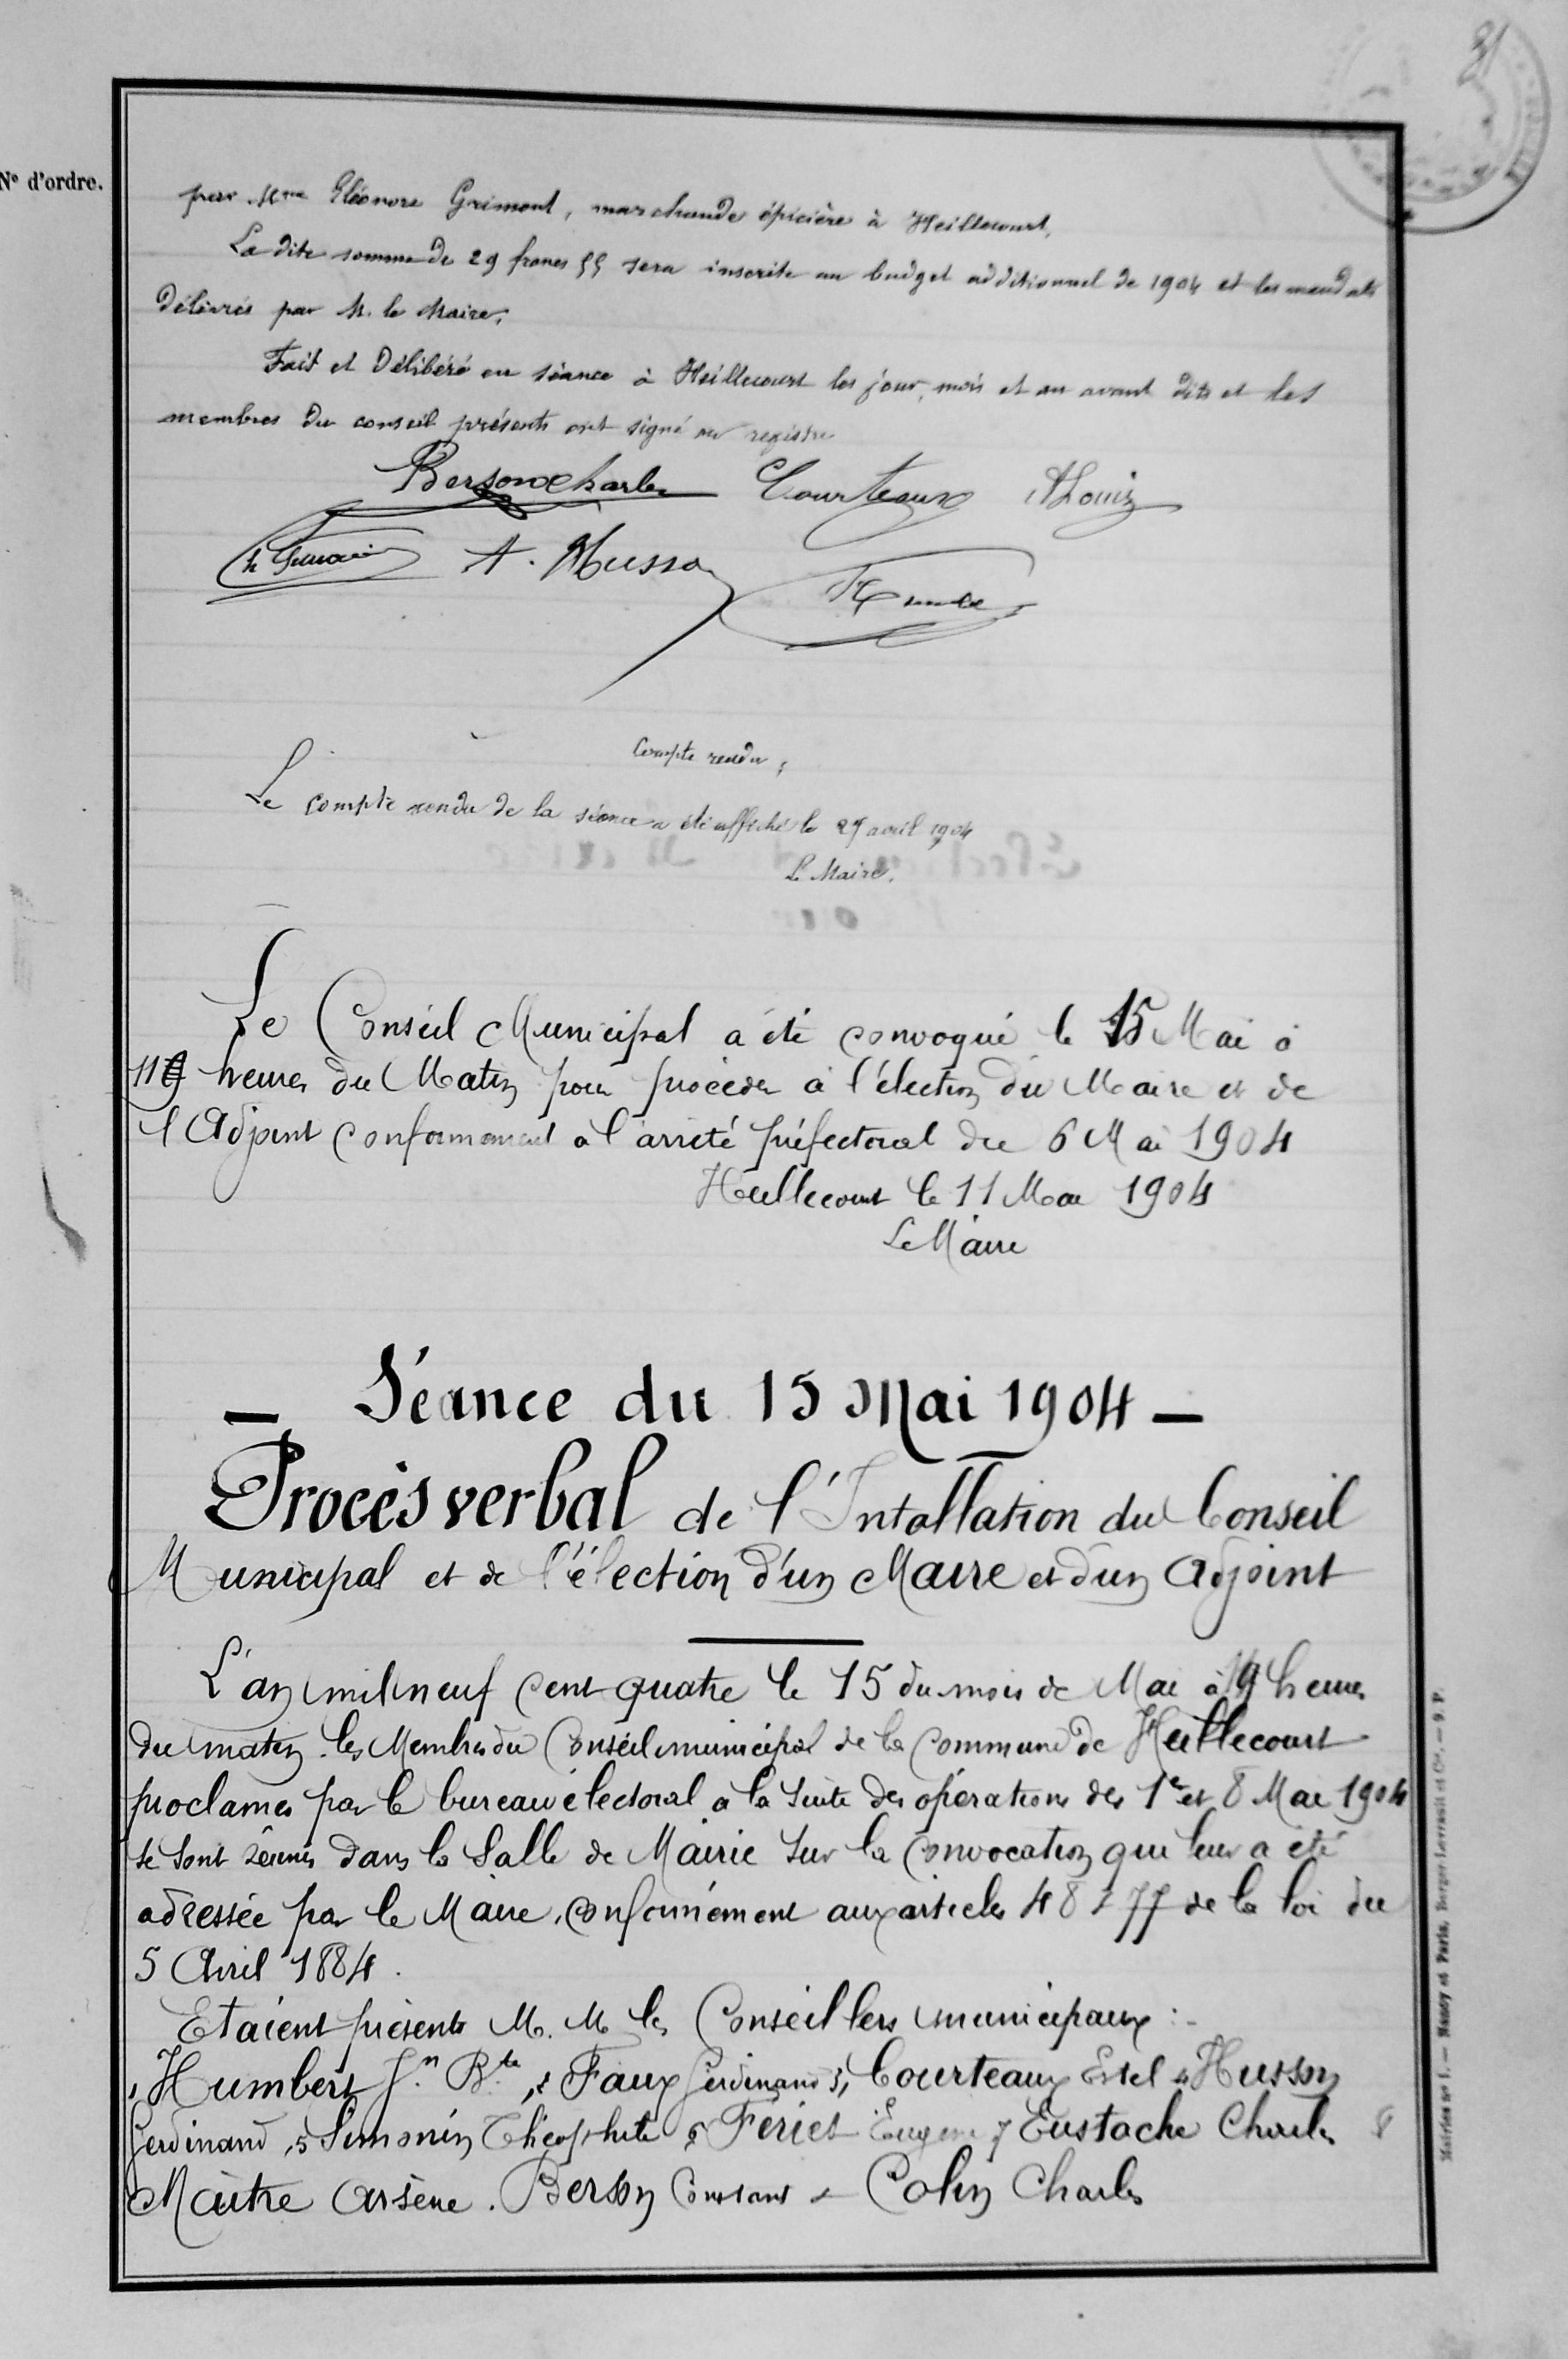 N° d'ordre.
par Mme Eléonore Grimont, marchande épicière à Heillecourt,
La dite somme de 29 francs 55 sera inscrite au budget additionnel de 1904 et les mandats
Délivrés par M. le Maire.
Fait et Délibéré en séance à Heillecourt les jour, mois et an avant dits et les
membres du conseil présents ont signé au registre
Berson Charles Courteaux
A. Husson
Compte rendu
Le compte rendu de la séance a été affiché le 27 avril 1904
Le Maire.
Le Conseil Municipal a été convoqué le 15 Mai à
heures du Matin pour procéder à l'élection du Maire et de
l'Adjoint conformement à l'arrêté préfectoral du 6 Mai 1904
Heillecourt le 11 Mai 1904
Le Maire
— Séance du 15 Mai 1904 —
Procès verbal de l'Intallation du Conseil
Municipal et de l'élection d'un Maire et d'un Adjoint
L'an mil neuf cent quatre le 15 du mois de Mai à heures
du matin les Membres du Conseil municipal de la Commune de Heillecourt
proclamés par le bureau électoral a la suite des opérations des 1er et 8 Mai 1904
se sont réunis dans la Salle de Mairie sur la Convocation qui leur a été
adressée par le Maire, conformément aux articles 48 & 77 de la loi du
5 Avril 1884.
Etaient présents M. M les Conseillers municipaux :-
1 Humbert Jn Bte, 2 Faux Ferdinand 3, Courteaux Estel 4 Husson
Ferdinand, 5 Simonin Théophile 6 Fériet Eugene 7 Eustache Charles 8
Maître Arsène. Berson Constant & Colin Charles
Mairies n° 1. — Nancy et Paris, Berger-Levrault et Cie. — 9 P.